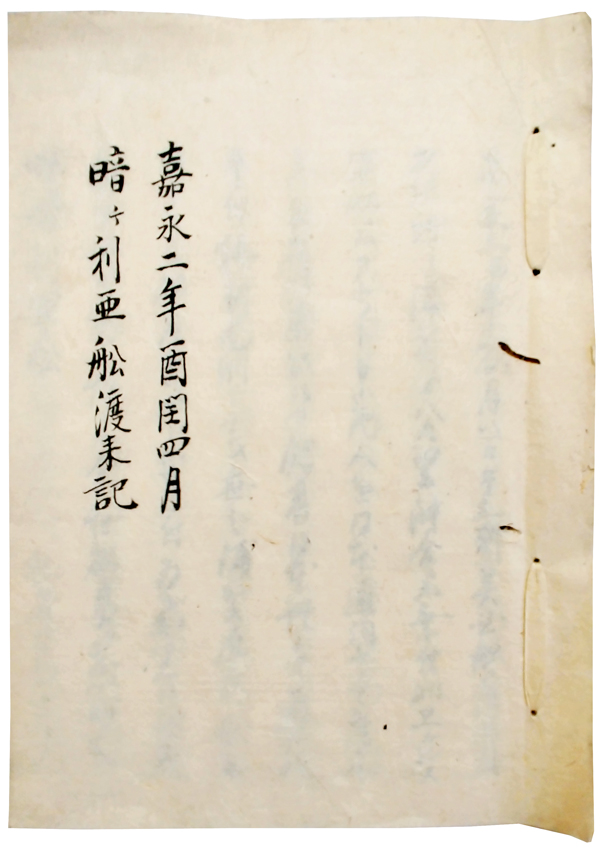 嘉永二年酉閏四月
暗ケ利亜舩渡来記